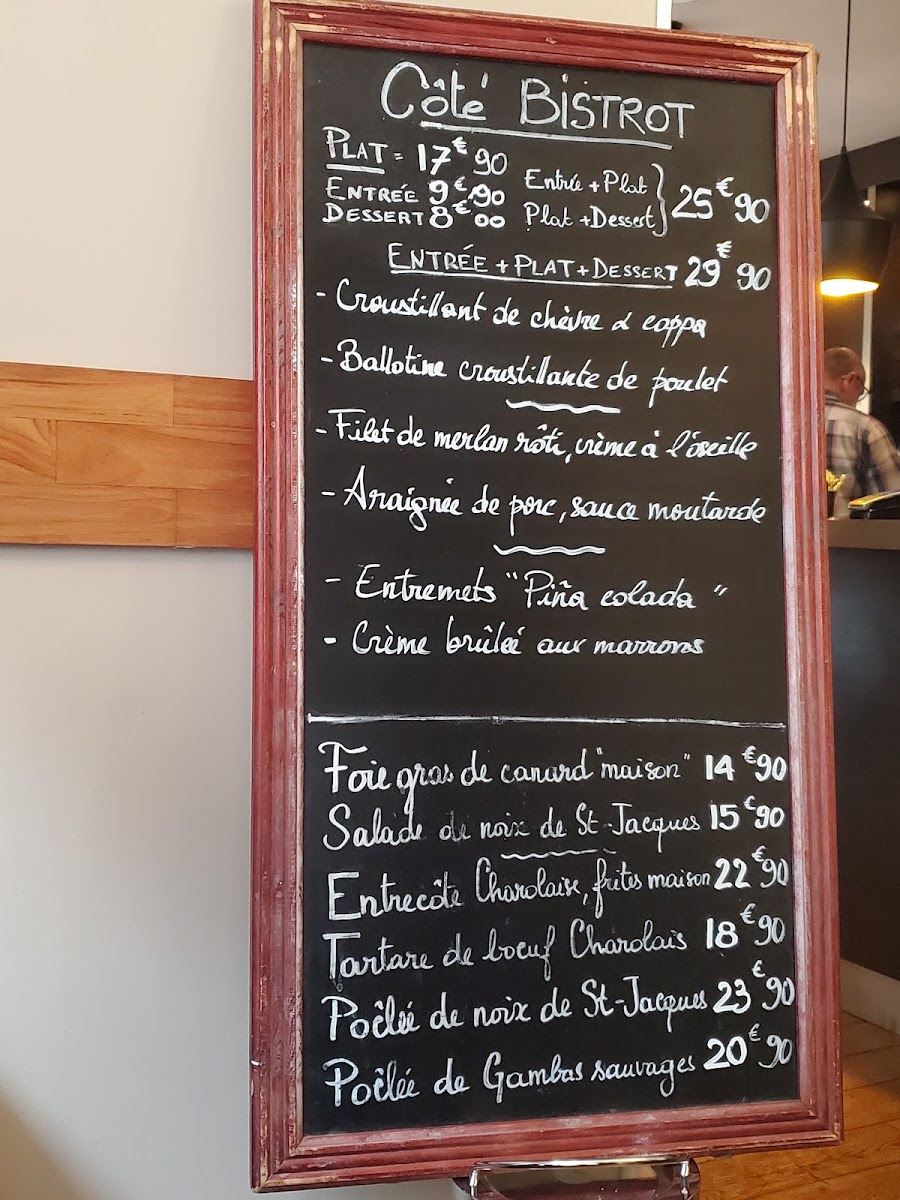 Côté BISTROT
PLAT = 17€90
ENTRÉE 9€90
DESSERT 8€00
Entrée + Plat
Plat + Dessert
25€90
ENTRÉE + PLAT + DESSERT 29€90
- Croustillant de chèvre & coppa
- Ballotine croustillante de poulet
- Filet de merlan rôti, crème à l'oseille
- Araignée de porc, sauce moutarde
- Entremets "Piña colada"
- Crème brûlée aux marrons
Foie gras de canard "maison" 14€90
Salade de noix de St-Jacques 15€90
Entrecôte Charolaise, frites maison 22€90
Tartare de boeuf Charolais 18€90
Poêlée de noix de St-Jacques 23€90
Poêlée de Gambas sauvages 20€90